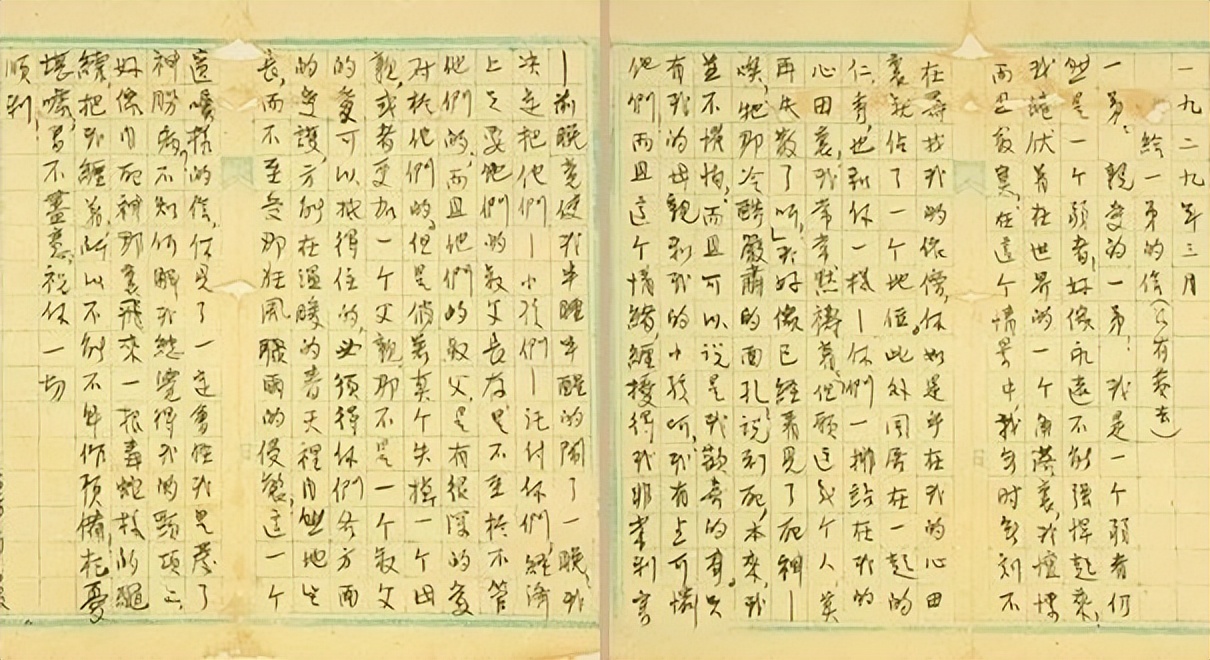 一九二九年三月
給一弟的信(没有蔡去)
一弟:親愛的一弟!我是一个弱者仍
然是一个弱者!好像永遠不能强悍起來,
我蜷伏着在世界的一个角落裏,我慄
而且寂寞!在這个情景中,我無时無刻不
在尋找我的依傍,你如是乎在我的心田
裏就佔了一个地位。此外同居在一起的
仁,秀,也和你一樣—你們一排站在我的
心田裏!我常常默禱着:但願这幾个人莫
再失散了呵!我好像已經看見了死神—
唉,牠那冷酷嚴肅的面孔!說到死,本來,我
並不懼怕,而且可以說是我歡喜的事。只
有我的母親和我的小孩呵,我有点可憐
他們!而且這个情緒,纏擾得我非常利害
—前晚竟使我半睡半醒的鬧了一晚。我
决定把他們—小孩們—託付你們,經濟
上只要他們的叔父長存,是不至於不管
他們的,而且他們的叔父,是有很深的愛
对於他們的。但是倘若真个失掉一个母
親,或者更加一个父親,那不是一个叔父
的愛可以抵得住的,必須得你們各方面
的愛護,方能在溫暖的春天裡自然地生
長,而不至受那狂風驟雨的侵襲!這一个
這囑樣的信,你見了一定會怪我是發了
神勝病?不知何解我總覺得我的頸項上
好像自死神那裏飛來一根毒蛇样的繩
繞,把我纏着,所以不能不早作預備!杞憂
堪嚎,書不盡意,祝你一切
順利!